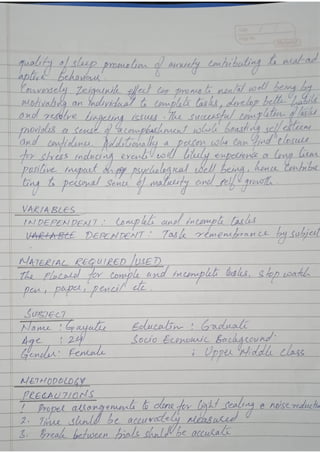 quality of sleep promotion of anxiety contributing to mal-ad
aptive behaviour.
Conversely Zeigarnik effect can promote mental well being by
motivating an individual to complete tasks, develop better habits
and resolve lingering issues. The successful completion of tasks
provides a sense of accomplishment while boosting self esteem
and confidence. Additionally a person who can find closure
for stress inducing events will likely experience a long term
positive impact on psychological well being, hence contribu
ting to personal sense of maturity and self growth.
VARIABLES
INDEPENDENT : Complete and incomple tasks
VARIABLE DEPENDENT : Task remembrance by subject
MATERIAL REQUIRED /USED
The Placard for comple and incomplete tasks, stop watch
pen, paper, pencil etc
SUBJECT
Name : Gayatri Education : Graduate
Age : 24 Socio Economic Background
Gender: Female : Upper Middle Class
METHODOLOGY
PRECAUTIONS
1. Proper arrangements to done for light sealing & noise reduction
2. Time should be accurately measured
3. Break between trials should be accurate